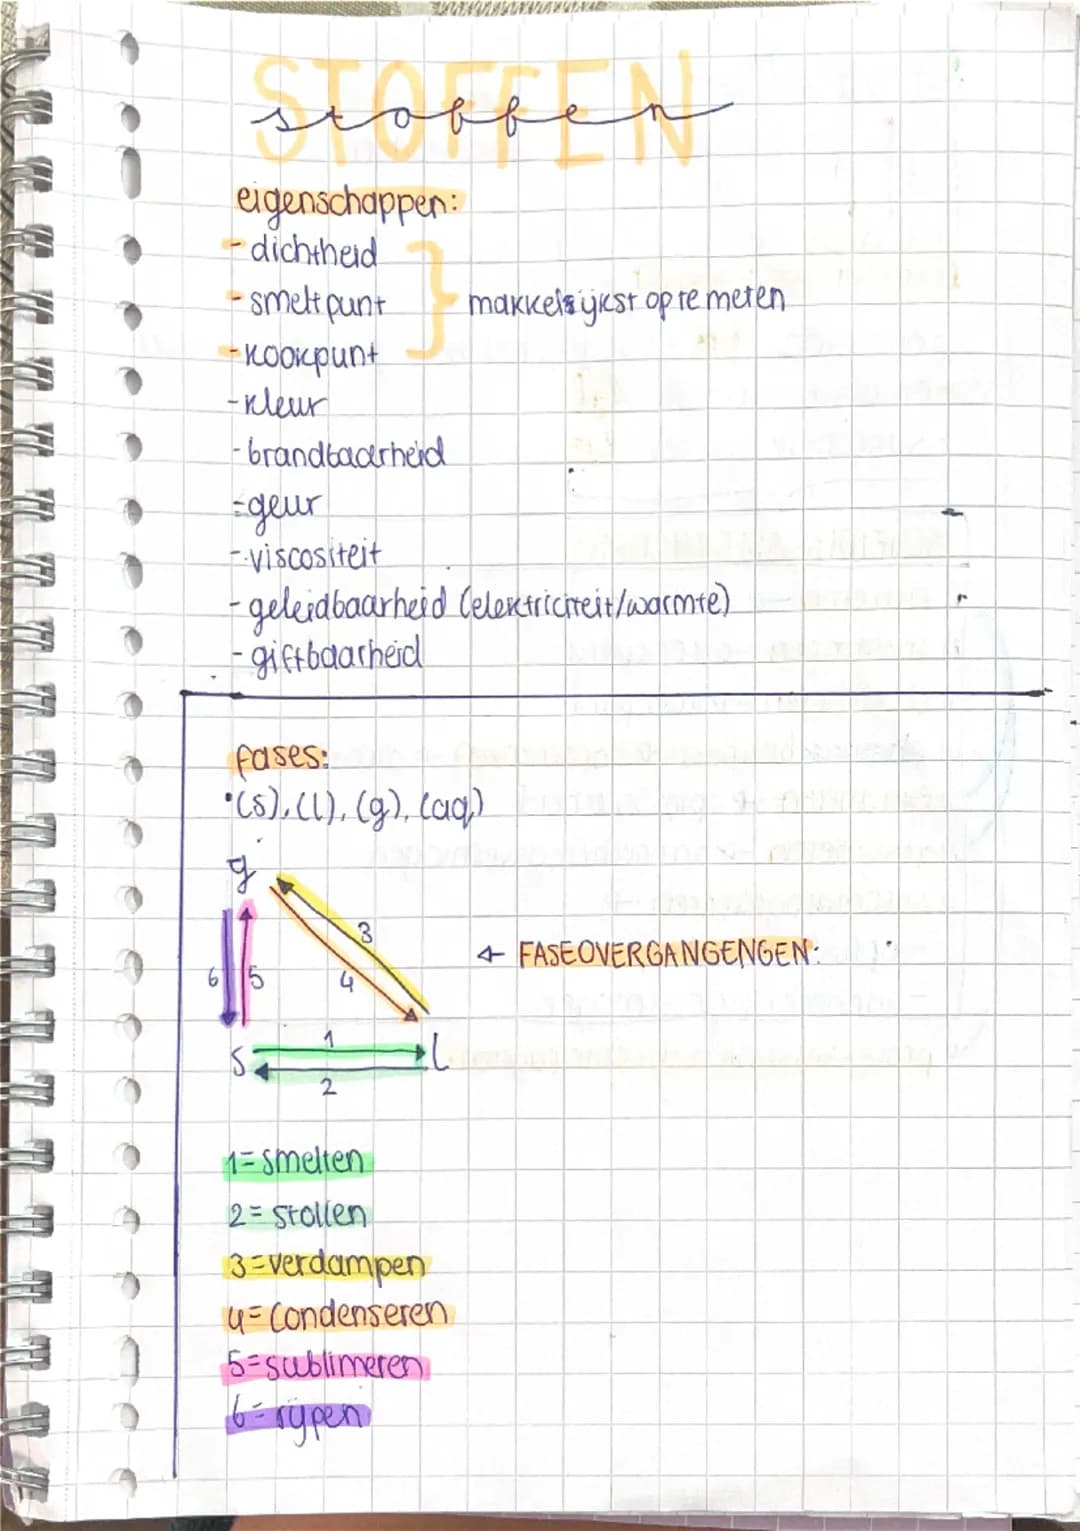 STOFFEN
stoffen
eigenschappen:
- dichtheid
- smeltpunt
makkelijkst op te meten
- kookpunt
- kleur
- brandbaarheid
- geur
- viscositeit
- geleidbaarheid (elektriciteit/warmte)
- giftbaarheid
fases:
•(s), (l), (g), (aq)
g
3
← FASEOVERGANGENGEN:
6 5 4
1
s l
2
1=smelten
2= stollen
3=verdampen
4=condenseren
5=sublimeren
6=rijpen